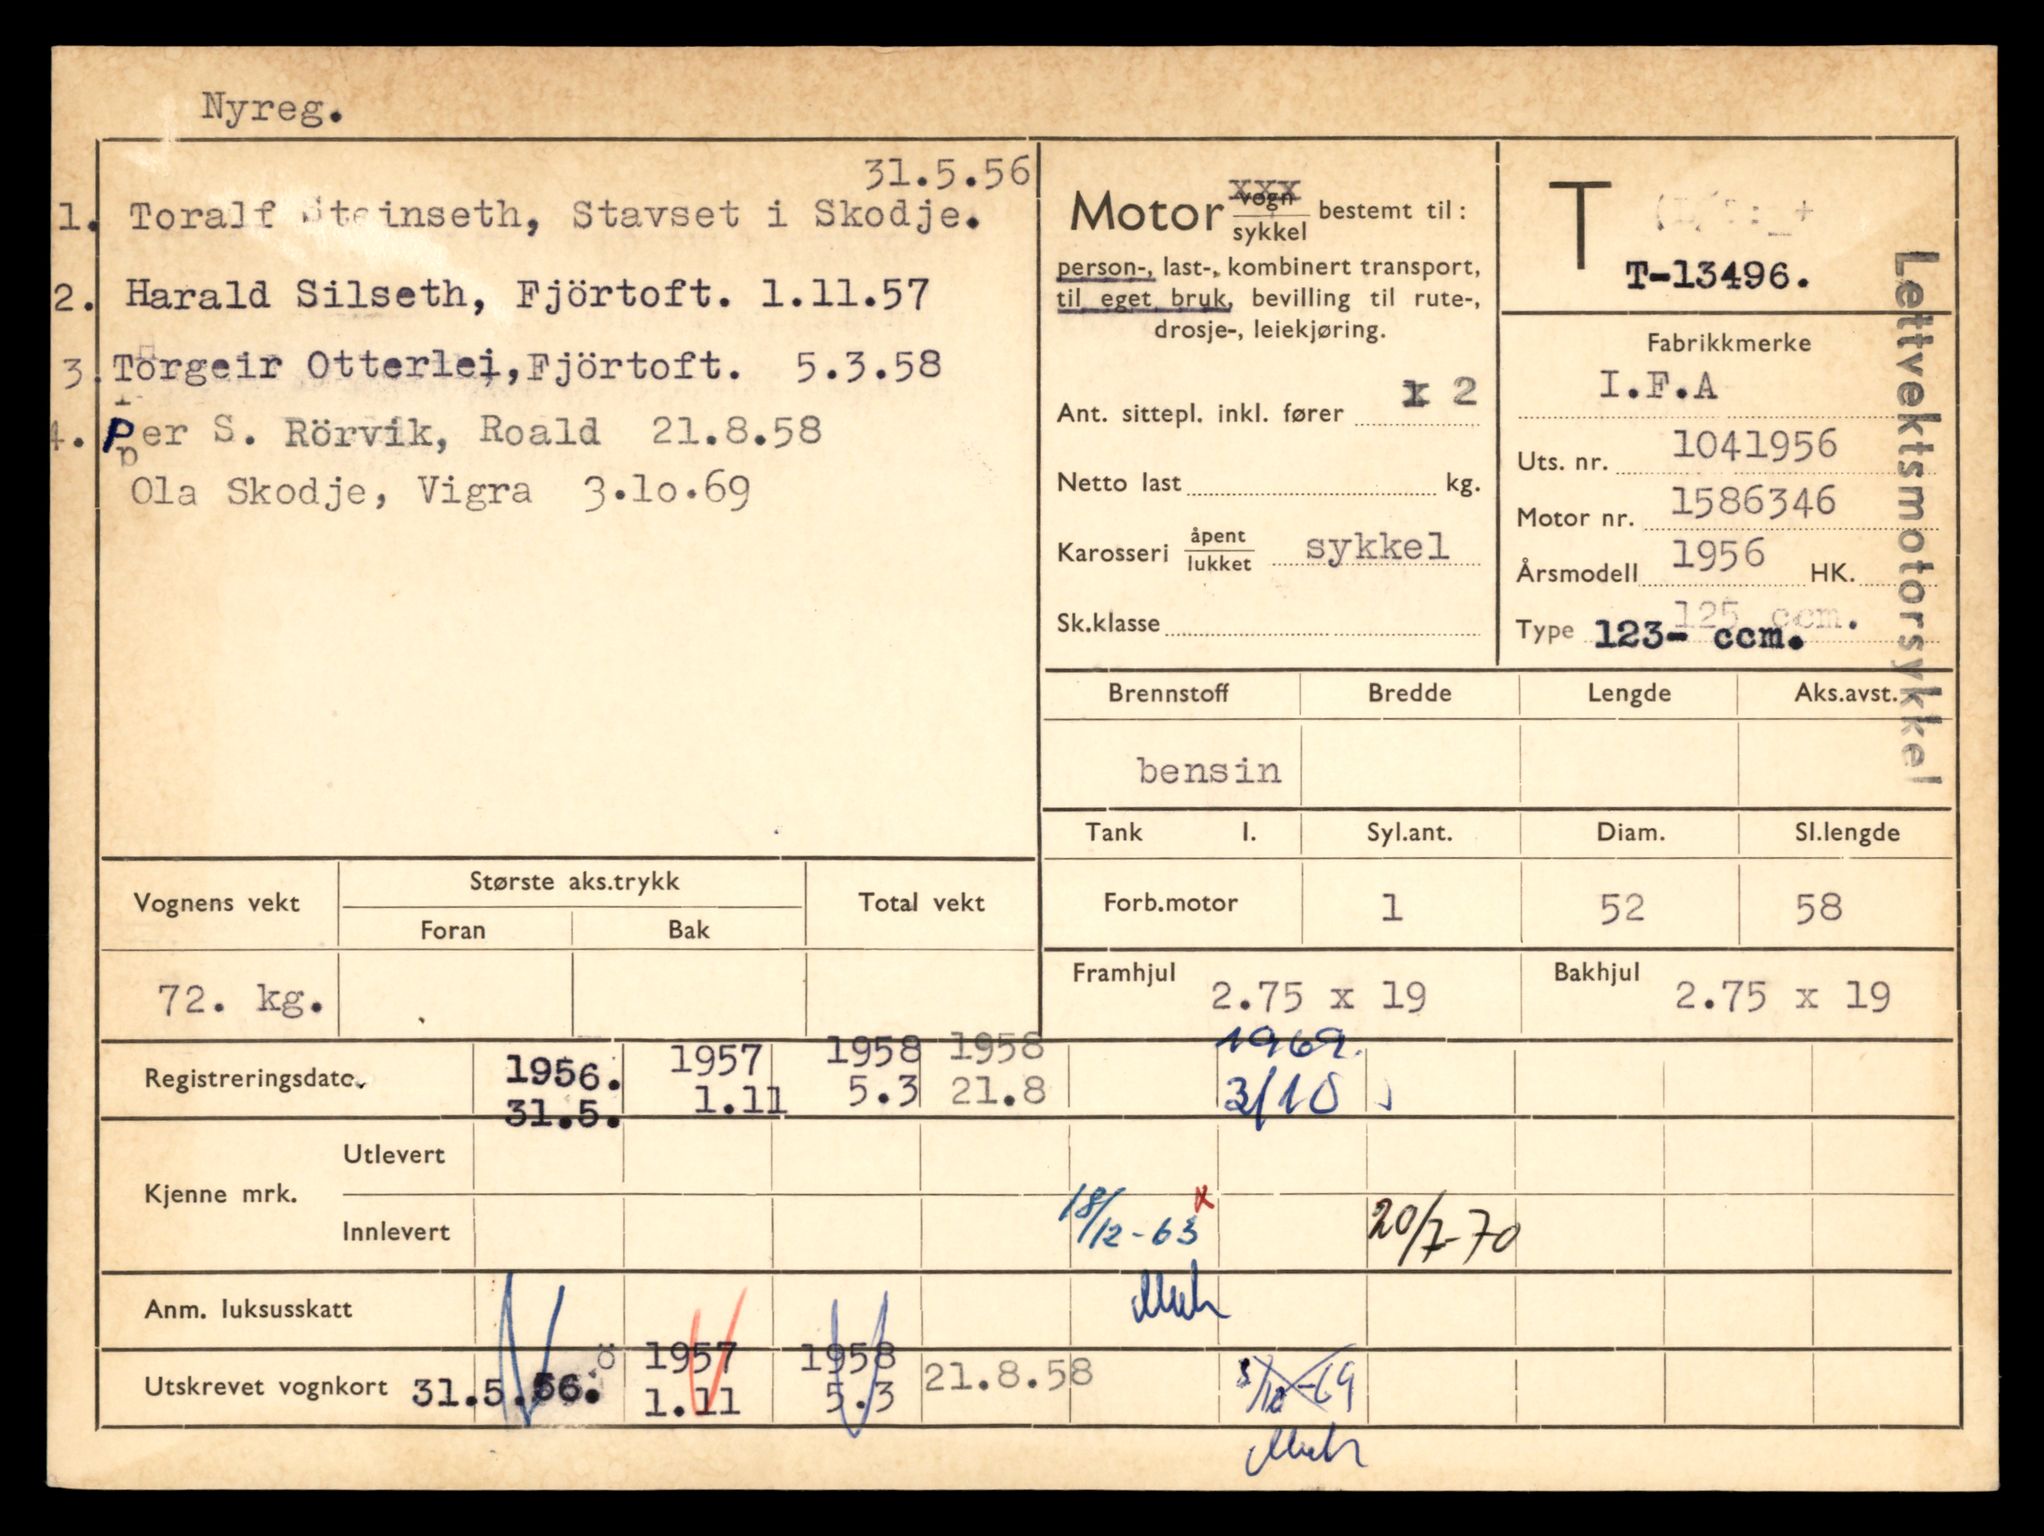 Nyreg.
31.5.56
1. Toralf Steinseth, Stavset i Skodje.
2. Harald Silseth, Fjörtoft. 1.11.57
3. Torgeir Otterlei, Fjörtoft. 5.3.58
4. Per S. Rörvik, Roald 21.8.58
Ola Skodje, Vigra 3.10.69
Motor vogn/sykkel bestemt til:
xxx
person-, last-, kombinert transport,
til eget bruk, bevilling til rute-,
drosje-, leiekjøring.
Ant. sittepl. inkl. fører 2
Netto last kg.
Karosseri åpent/lukket sykkel
Sk.klasse
T
T-13496.
Fabrikkmerke
I.F.A
Uts. nr. 1041956
Motor nr. 1586346
Årsmodell 1956 HK.
125 ccm.
Type 123- ccm.
Lettvektsmotorsykkel
Brennstoff Bredde Lengde Aks.avst.
bensin
Tank l. Syl.ant. Diam. Sl.lengde
Forb.motor 1 52 58
Framhjul 2.75 x 19 Bakhjul 2.75 x 19
Vognens vekt Største aks.trykk Total vekt
Foran Bak
72. kg.
1956. 1957 1958 1958 1969.
Registreringsdato 31.5. 1.11 5.3 21.8 3/10
Kjenne mrk. Utlevert
Innlevert 18/12-63 x 20/7-70
Anm. luksusskatt
ö 1957 1958
Utskrevet vognkort 31.5.56. 1.11 5.3 21.8.58 3/10-69